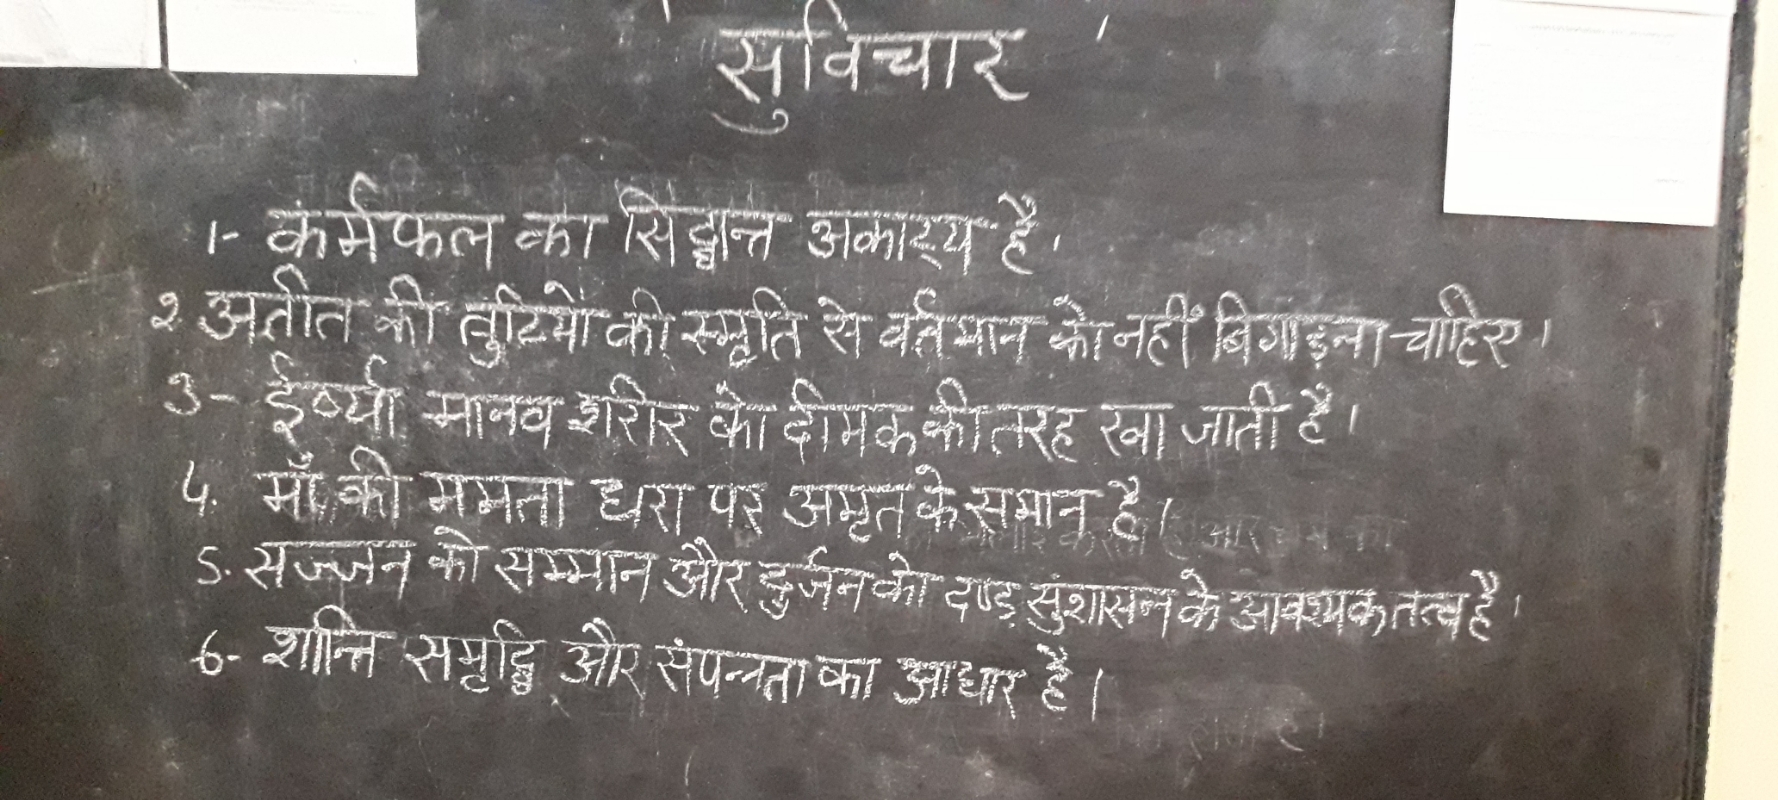 सुविचार
1- कर्मफल का सिद्धान्त अकार्य है।
२. अतीत की त्रुटियों की स्मृति से वर्तमान को नहीं बिगाड़ना चाहिए।
3- ईर्ष्या मानव शरीर को दीमक की तरह खा जाती है।
4. माँ की ममता धरा पर अमृत के समान है।
5. सज्जन को सम्मान और दुर्जन को दण्ड सुशासन के आवश्यक तत्व है।
6- शान्ति समृद्धि और संपन्नता का आधार है।